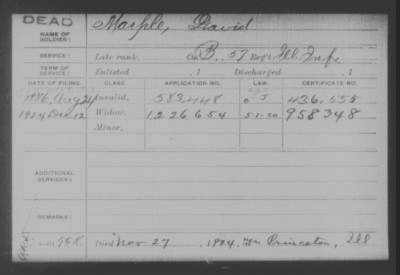 DEAD
NAME OF SOLDIER: Marple, David
SERVICE: Late rank, Co. B, 57 Reg't Ill. Inf.
TERM OF SERVICE: Enlisted , 1 Discharged , 1
DATE OF FILING. CLASS. APPLICATION NO. LAW. CERTIFICATE NO.
1886 Aug 21 Invalid, 583,448 436,555
1924 Dec. 12 Widow, 1226654 5-1-20 958348
Minor,
ADDITIONAL SERVICES:
REMARKS:
Died Nov 27, 1924, Princeton, Ill